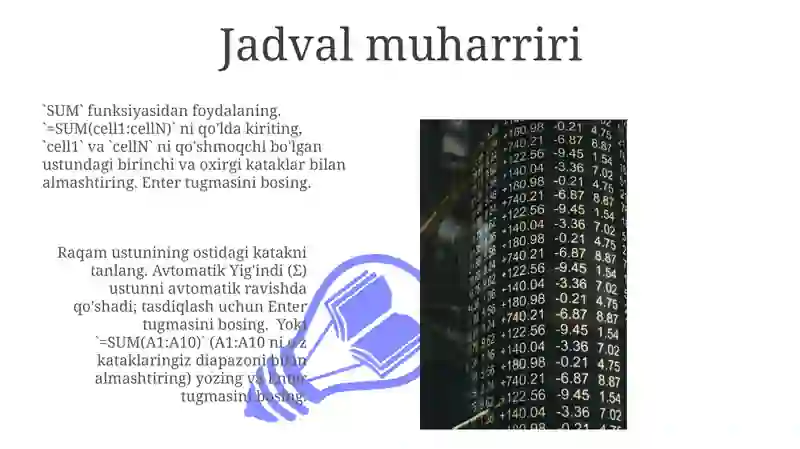 Jadval muharriri
`SUM` funksiyasidan foydalaning.
`=SUM(cell1:cellN)` ni qo'lda kiriting,
`cell1` va `cellN` ni qo'shmoqchi bo'lgan
ustundagi birinchi va oxirgi kataklar bilan
almashtiring. Enter tugmasini bosing.
Raqam ustunining ostidagi katakni
tanlang. Avtomatik Yig'indi (Σ)
ustunni avtomatik ravishda
qo'shadi; tasdiqlash uchun Enter
tugmasini bosing. Yoki
`=SUM(A1:A10)` (A1:A10 ni o'z
kataklaringiz diapazoni bilan
almashtiring) yozing va Enter
tugmasini bosing.
+180.98 -0.21 4.75
+740.21 -6.87 8.87
+122.56 -9.45 1.54
+140.04 -3.36 7.02
+180.98 -0.21 4.75
+740.21 -6.87 8.87
+122.56 -9.45 1.54
+140.04 -3.36 7.02
+180.98 -0.21 4.75
+740.21 -6.87 8.87
+122.56 -9.45 1.54
+140.04 -3.36 7.02
+180.98 -0.21 4.75
+740.21 -6.87 8.87
+122.56 -9.45 1.54
+140.04 -3.36 7.02
+180.98 -0.21 4.75
+740.21 -6.87 8.87
+122.56 -9.45 1.54
+140.04 -3.36 7.02